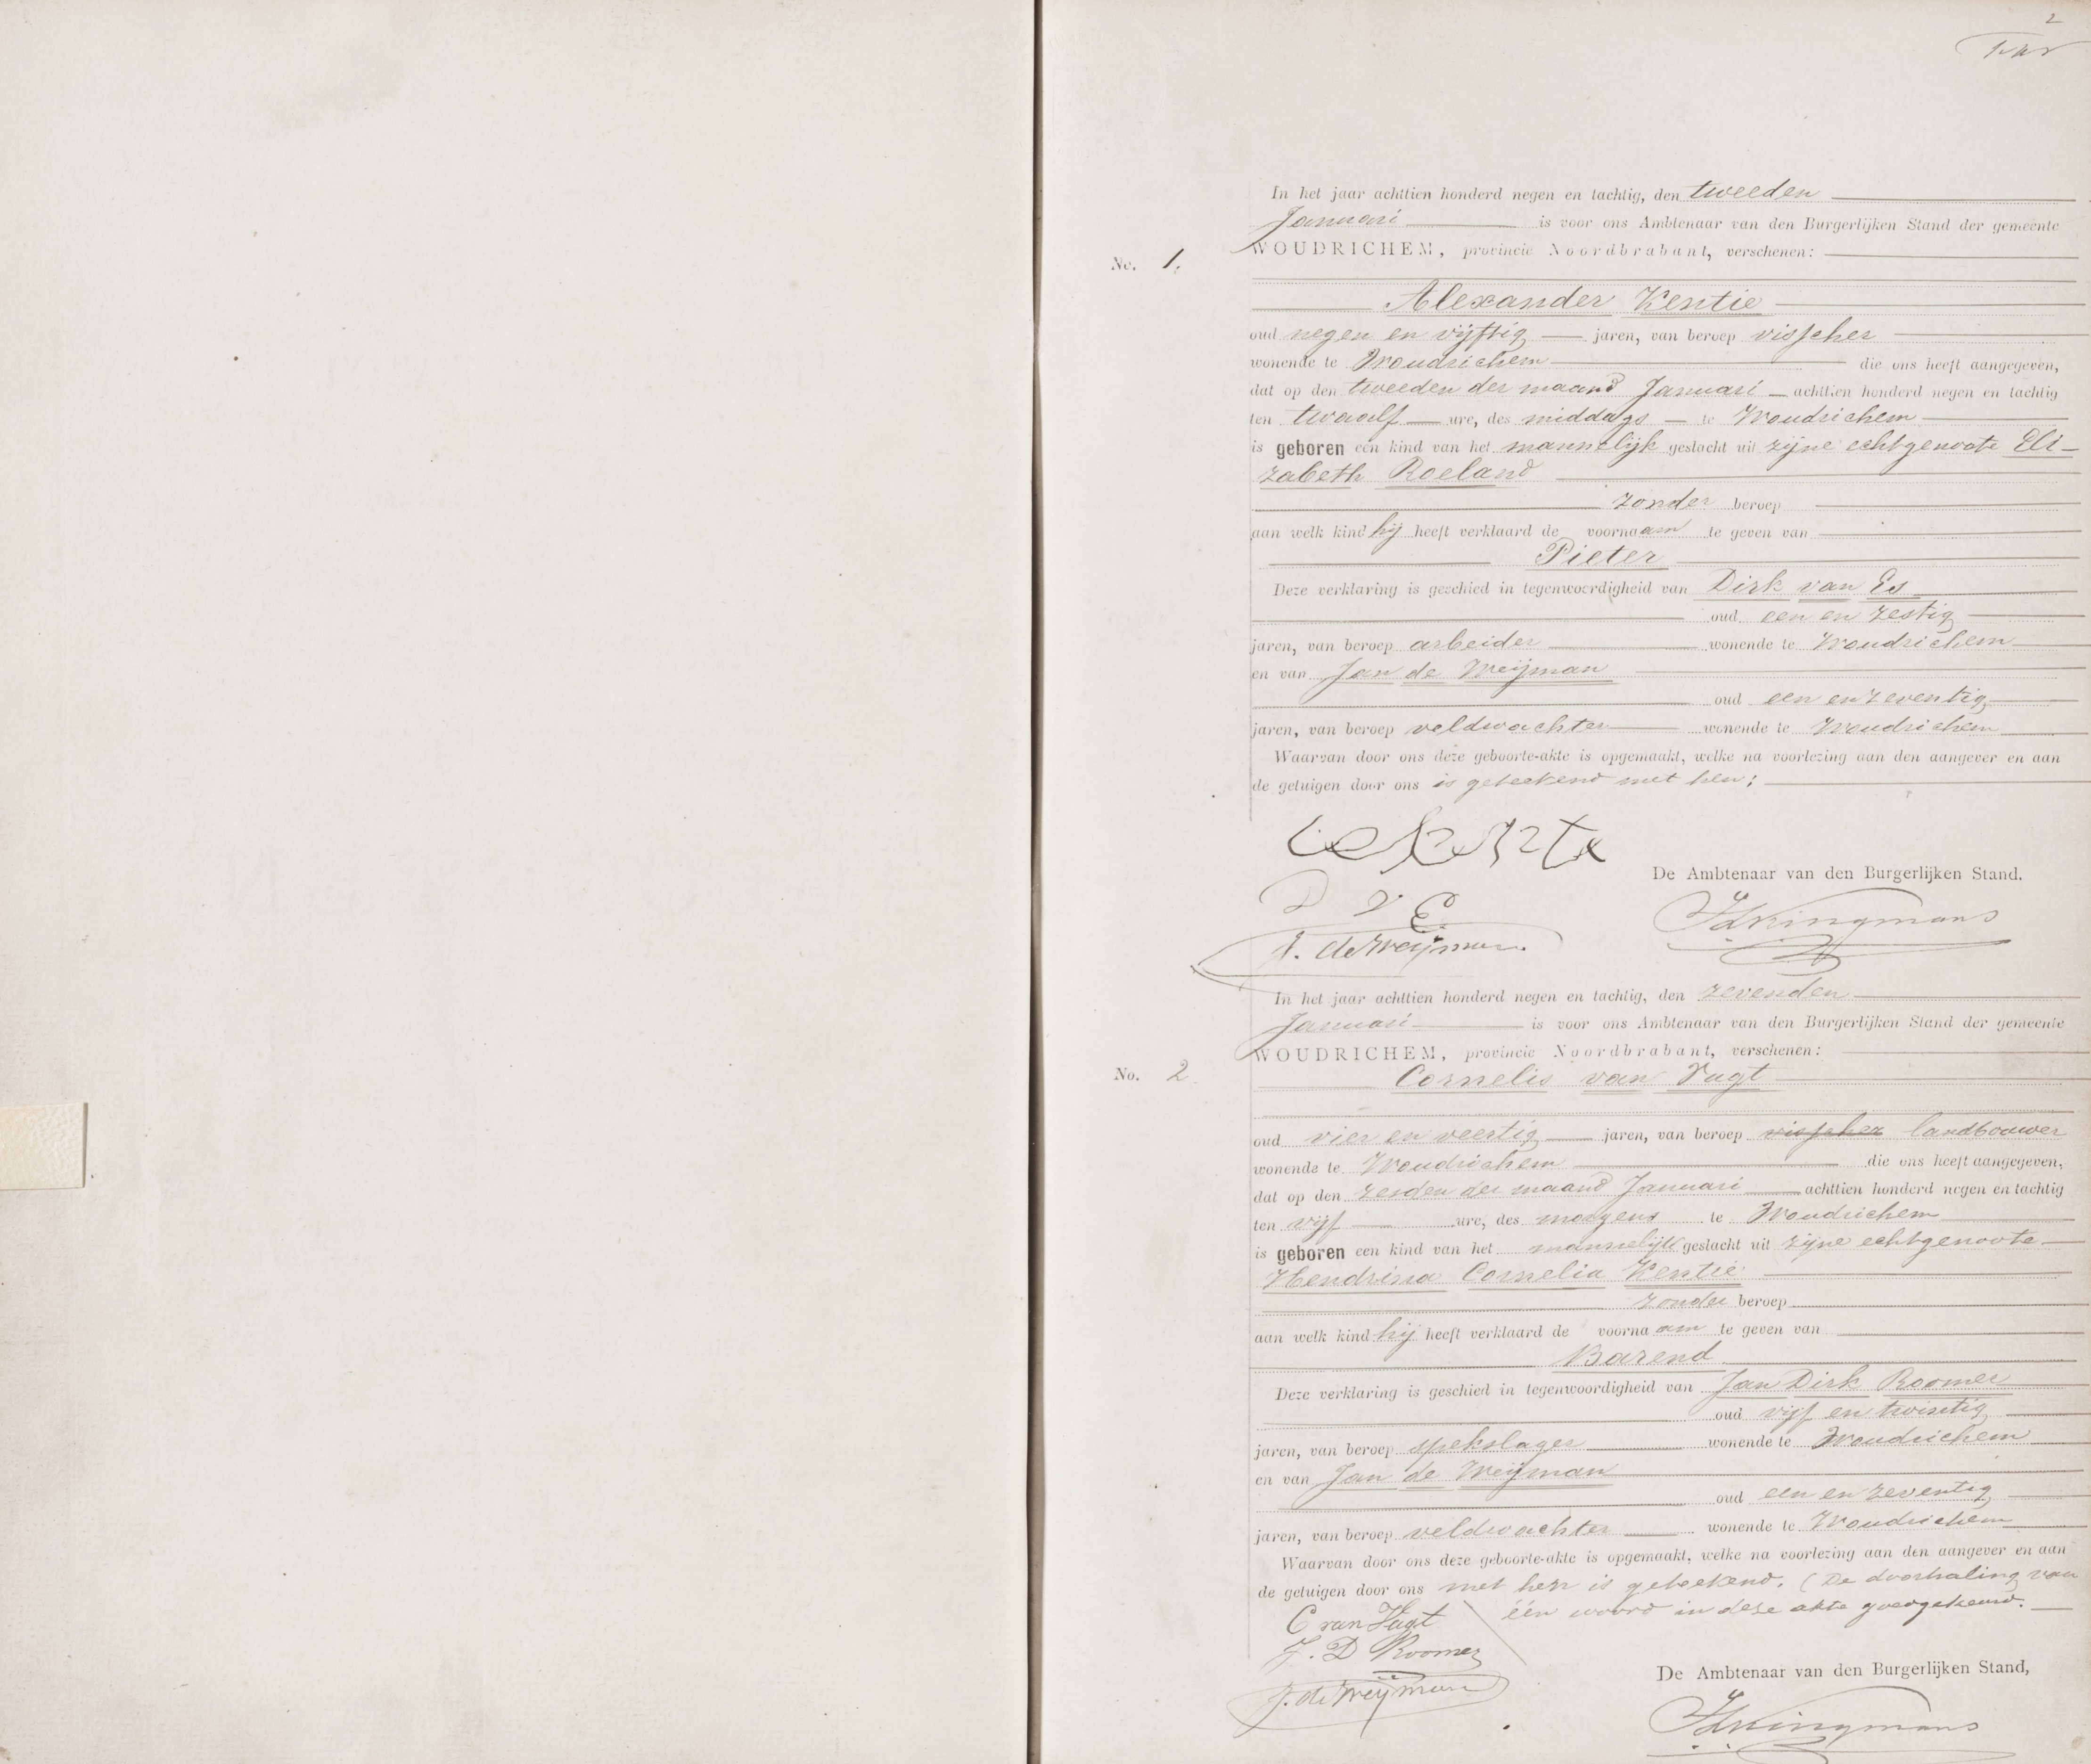 2
In het jaar achttien honderd negen en tachtig, den tweeden
Januari is voor ons Ambtenaar van den Burgerlijken Stand der gemeente
WOUDRICHEM, provincie Noordbrabant, verschenen:
No. 1.
Alexander Kentie
oud negen en vijftig jaren, van beroep visscher
wonende te Woudrichem die ons heeft aangegeven,
dat op den tweeden der maand Januari achttien honderd negen en tachtig
ten twaalf ure, des middags te Woudrichem
is geboren een kind van het mannelijk geslacht uit zijne echtgenoote Eli-
zabeth Roeland
zonder beroep
aan welk kind hij heeft verklaard de voornaam te geven van
Pieter
Deze verklaring is geschied in tegenwoordigheid van Dirk van Es
oud een en zestig
jaren, van beroep arbeider wonende te Woudrichem
en van Jan de Weijman
oud een en zeventig
jaren, van beroep veldwachter wonende te Woudrichem
Waarvan door ons deze geboorte-akte is opgemaakt, welke na voorlezing aan den aangever en aan
de getuigen door ons is geteekend met hen;
De Ambtenaar van den Burgerlijken Stand.
D v E
J. de Weijman.
In het jaar achttien honderd negen en tachtig, den zevenden
Januari is voor ons Ambtenaar van den Burgerlijken Stand der gemeente
WOUDRICHEM, provincie Noordbrabant, verschenen:
No. 2
Cornelis van Vugt
oud vier en veertig jaren, van beroep visscher landbouwer
wonende te Woudrichem die ons heeft aangegeven,
dat op den zesden der maand Januari achttien honderd negen en tachtig
ten vijf ure, des morgens te Woudrichem
is geboren een kind van het mannelijk geslacht uit zijne echtgenoote
Hendrina Cornelia Kentie
zonder beroep
aan welk kind hij heeft verklaard de voornaam te geven van
Barend
Deze verklaring is geschied in tegenwoordigheid van Jan Dirk Roomer
oud vijf en twintig
jaren, van beroep spekslager wonende te Woudrichem
en van Jan de Weijman
oud een en zeventig
jaren, van beroep veldwachter wonende te Woudrichem
Waarvan door ons deze geboorte-akte is opgemaakt, welke na voorlezing aan den aangever en aan
de getuigen door ons met hen is geteekend. (De doorhaling van
één woord in deze akte goedgekeurd.
C van Vugt
J. D Roomer
De Ambtenaar van den Burgerlijken Stand,
J. de Weijman